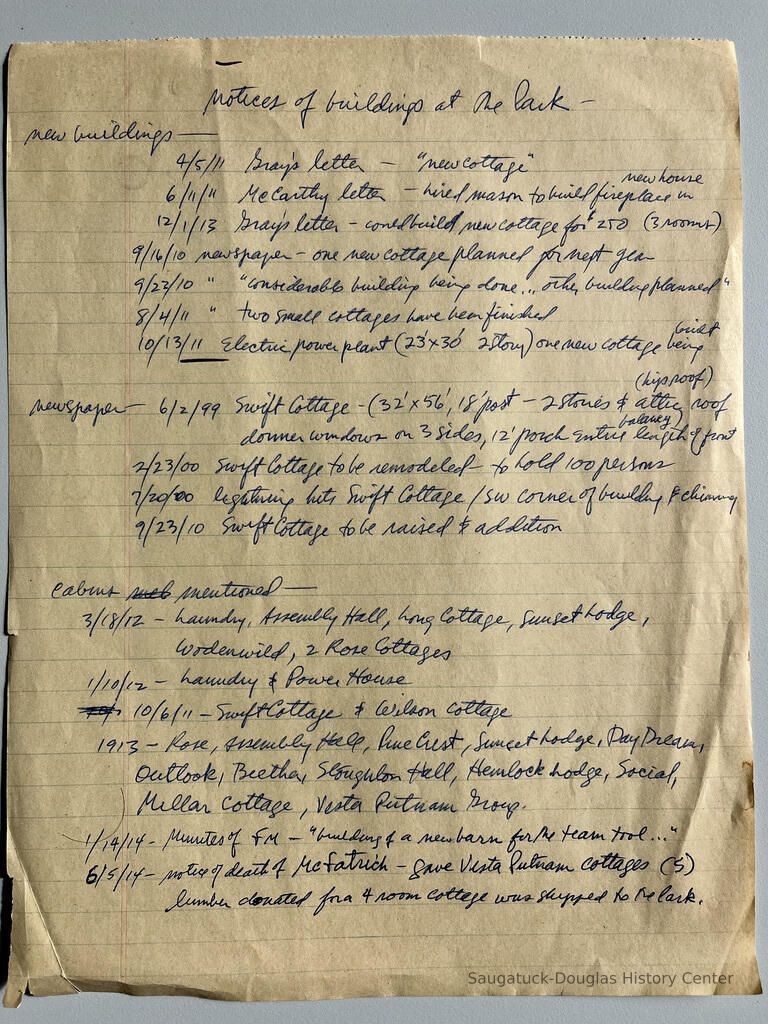 Notices of buildings at the Park -
new buildings -
4/5/11 Gray's letter - "new cottage"
new house
6/11/11 McCarthy letter - hired mason to build fireplace in
12/1/13 Gray's letter - could build new cottage for $250 (3 rooms)
9/16/10 newspaper - one new cottage planned for next year
9/23/10 " "considerable building being done... other building planned"
8/4/11 " two small cottages have been finished
built
10/13/11 Electric power plant (23'x30' 2 story) one new cottage being
(hip roof)
newspaper - 6/2/99 Swift Cottage - (32'x56', 18' post - 2 stories & attic roof
balcony
dormer windows on 3 sides, 12' porch entire length of front
2/23/00 Swift Cottage to be remodeled - to hold 100 persons
7/20/00 lightning hits Swift Cottage / SW corner of building & chimney
9/23/10 Swift Cottage to be raised & addition
Cabins mentioned -
3/18/12 - Laundry, Assembly Hall, Long Cottage, Sunset Lodge,
Wodenwild, 2 Rose Cottages
1/10/12 - Laundry & Power House
10/6/11 - Swift Cottage & Wilson Cottage
1913 - Rose, Assembly Hall, Pine Crest, Sunset Lodge, Day Dream,
Outlook, Beetha, Stoughton Hall, Hemlock Lodge, Social,
Millar Cottage, Vesta Putnam Group.
1/14/14 - Minutes of FM - "building of a new barn for the team tool..."
6/5/14 - notice of death of McFatrich - gave Vesta Putnam cottages (5)
lumber donated for a 4 room cottage was shipped to the Park.
Saugatuck-Douglas History Center